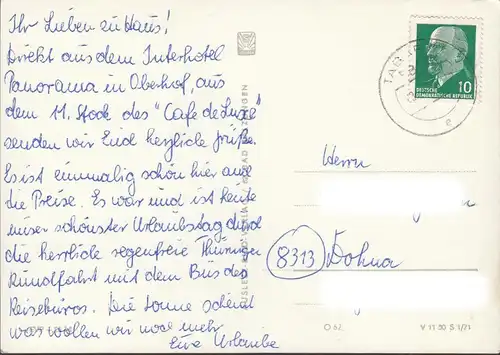 Ihr Lieben zu Haus!
Direkt aus dem Interhotel
Panorama in Oberhof, aus
dem 11. Stock des "Cafe de Luxe"
senden wir Euch herzliche Grüße.
Es ist einmalig schön hier auf
die Preise. Es war und ist heute
unser schönster Urlaubstag durch
die herrliche regenfreie Thüringen
Rundfahrt mit dem Bus des
Reisebüros. Die Sonne scheint
was wollen wir noch mehr
Eure Urlaube
10
DEUTSCHE
DEMOKRATISCHE REPUBLIK
e
Herrn
8313 Dohna
BAD SALZUNGEN
O 62.
V 11 50 S 1/71